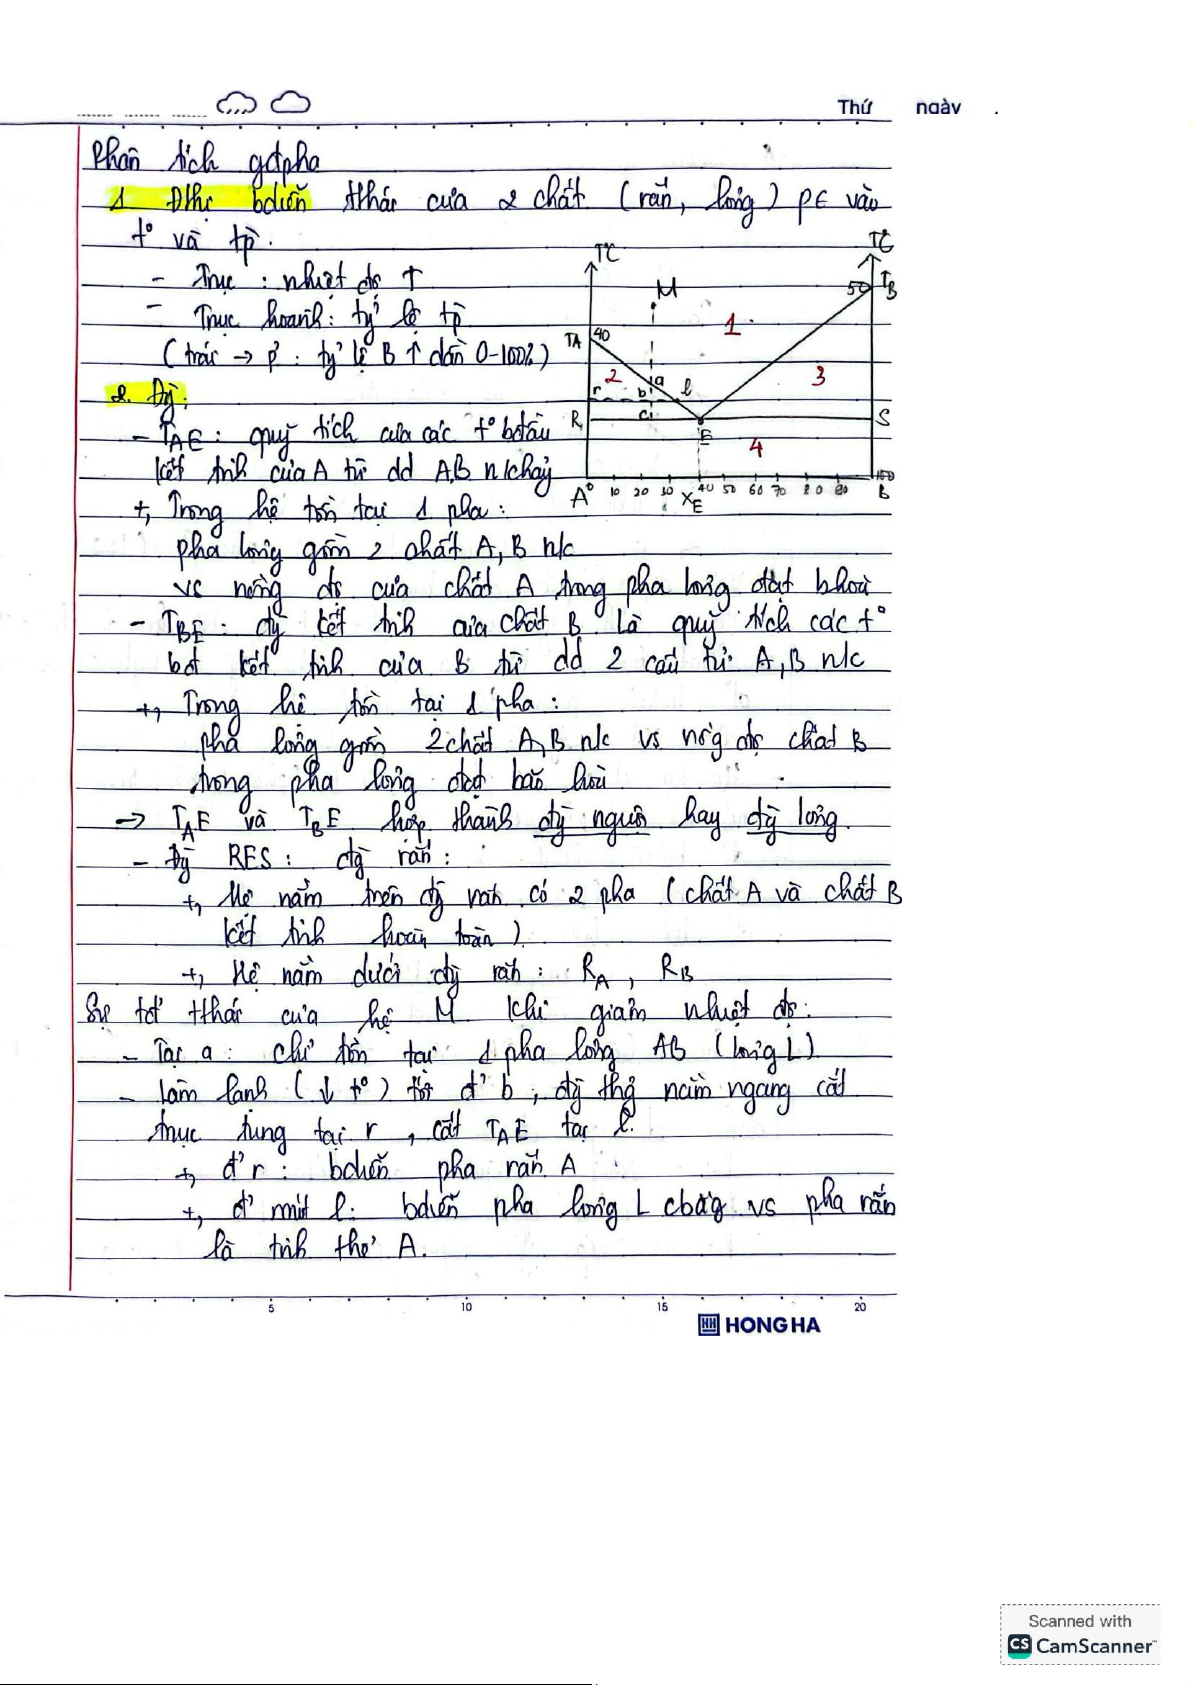 Thứ ngày .
Phân tích gđpha
1 Đthị bdiễn tthái của 2 chất (rắn, lỏng) p∈ vào
t° và tp.
- Trục : nhiệt độ ↑
- Trục hoành: tỷ lệ tp
(trái → p' : tỷ lệ B ↑ dần 0-100%)
T°C
T°C
M
50 TB
1
TA 40
2 a 3
r b l
R c S
E
4
A 0 10 20 30 XE 40 50 60 70 80 90 100 B
2. Đg:
- TAE : quỹ tích của các t° bđầu
kết tinh của A từ dd A,B n/chảy
+, Trong hệ tồn tại 1 pha :
pha lỏng gồm 2 chất A, B n/c
vs nồng độ của chất A trong pha lỏng đạt bhoà
- TBE : đg kết tinh của chất B là quỹ tích các t°
bđ kết tinh của B từ dd 2 cấu tử A, B n/c
+, Trong hệ tồn tại 1 pha :
pha lỏng gồm 2 chất A,B n/c vs nồg độ chất B
trong pha lỏng đạt bão hoà
→ TAE và TBE hợp thành đg nguội hay đg lỏng.
- Đg RES : đg rắn :
+, Hệ nằm trên đg rắn có 2 pha (chất A và chất B
kết tinh hoàn toàn)
+, Hệ nằm dưới đg rắn : RA , RB
Sự tđ tthái của hệ M khi giảm nhiệt độ:
- Tại a : chỉ tồn tại 1 pha lỏng AB (lỏng L)
- Làm lạnh (↓ t°) tới đ' b , đg thg nằm ngang cắt
trục tung tại r , cắt TAE tại l.
+, đ' r : bdiễn pha rắn A
+, đ' mút l : bdiễn pha lỏng L cbằg vs pha rắn
là tinh thể A.
5 10 15 20
HH HONG HA
Scanned with
CS CamScanner